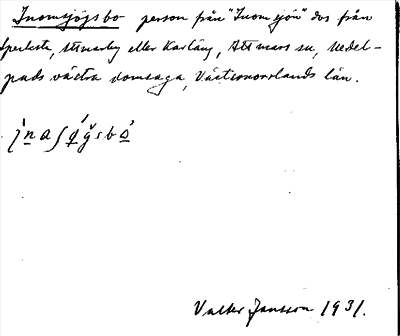 Inomsjögsbo person från "Inomsjön" dvs från
Sperlista, Attmarby eller Karläng, Attmars sn, Medel-
pads västra domsaga, Västernorrlands län.
Valter Jansson 1931.